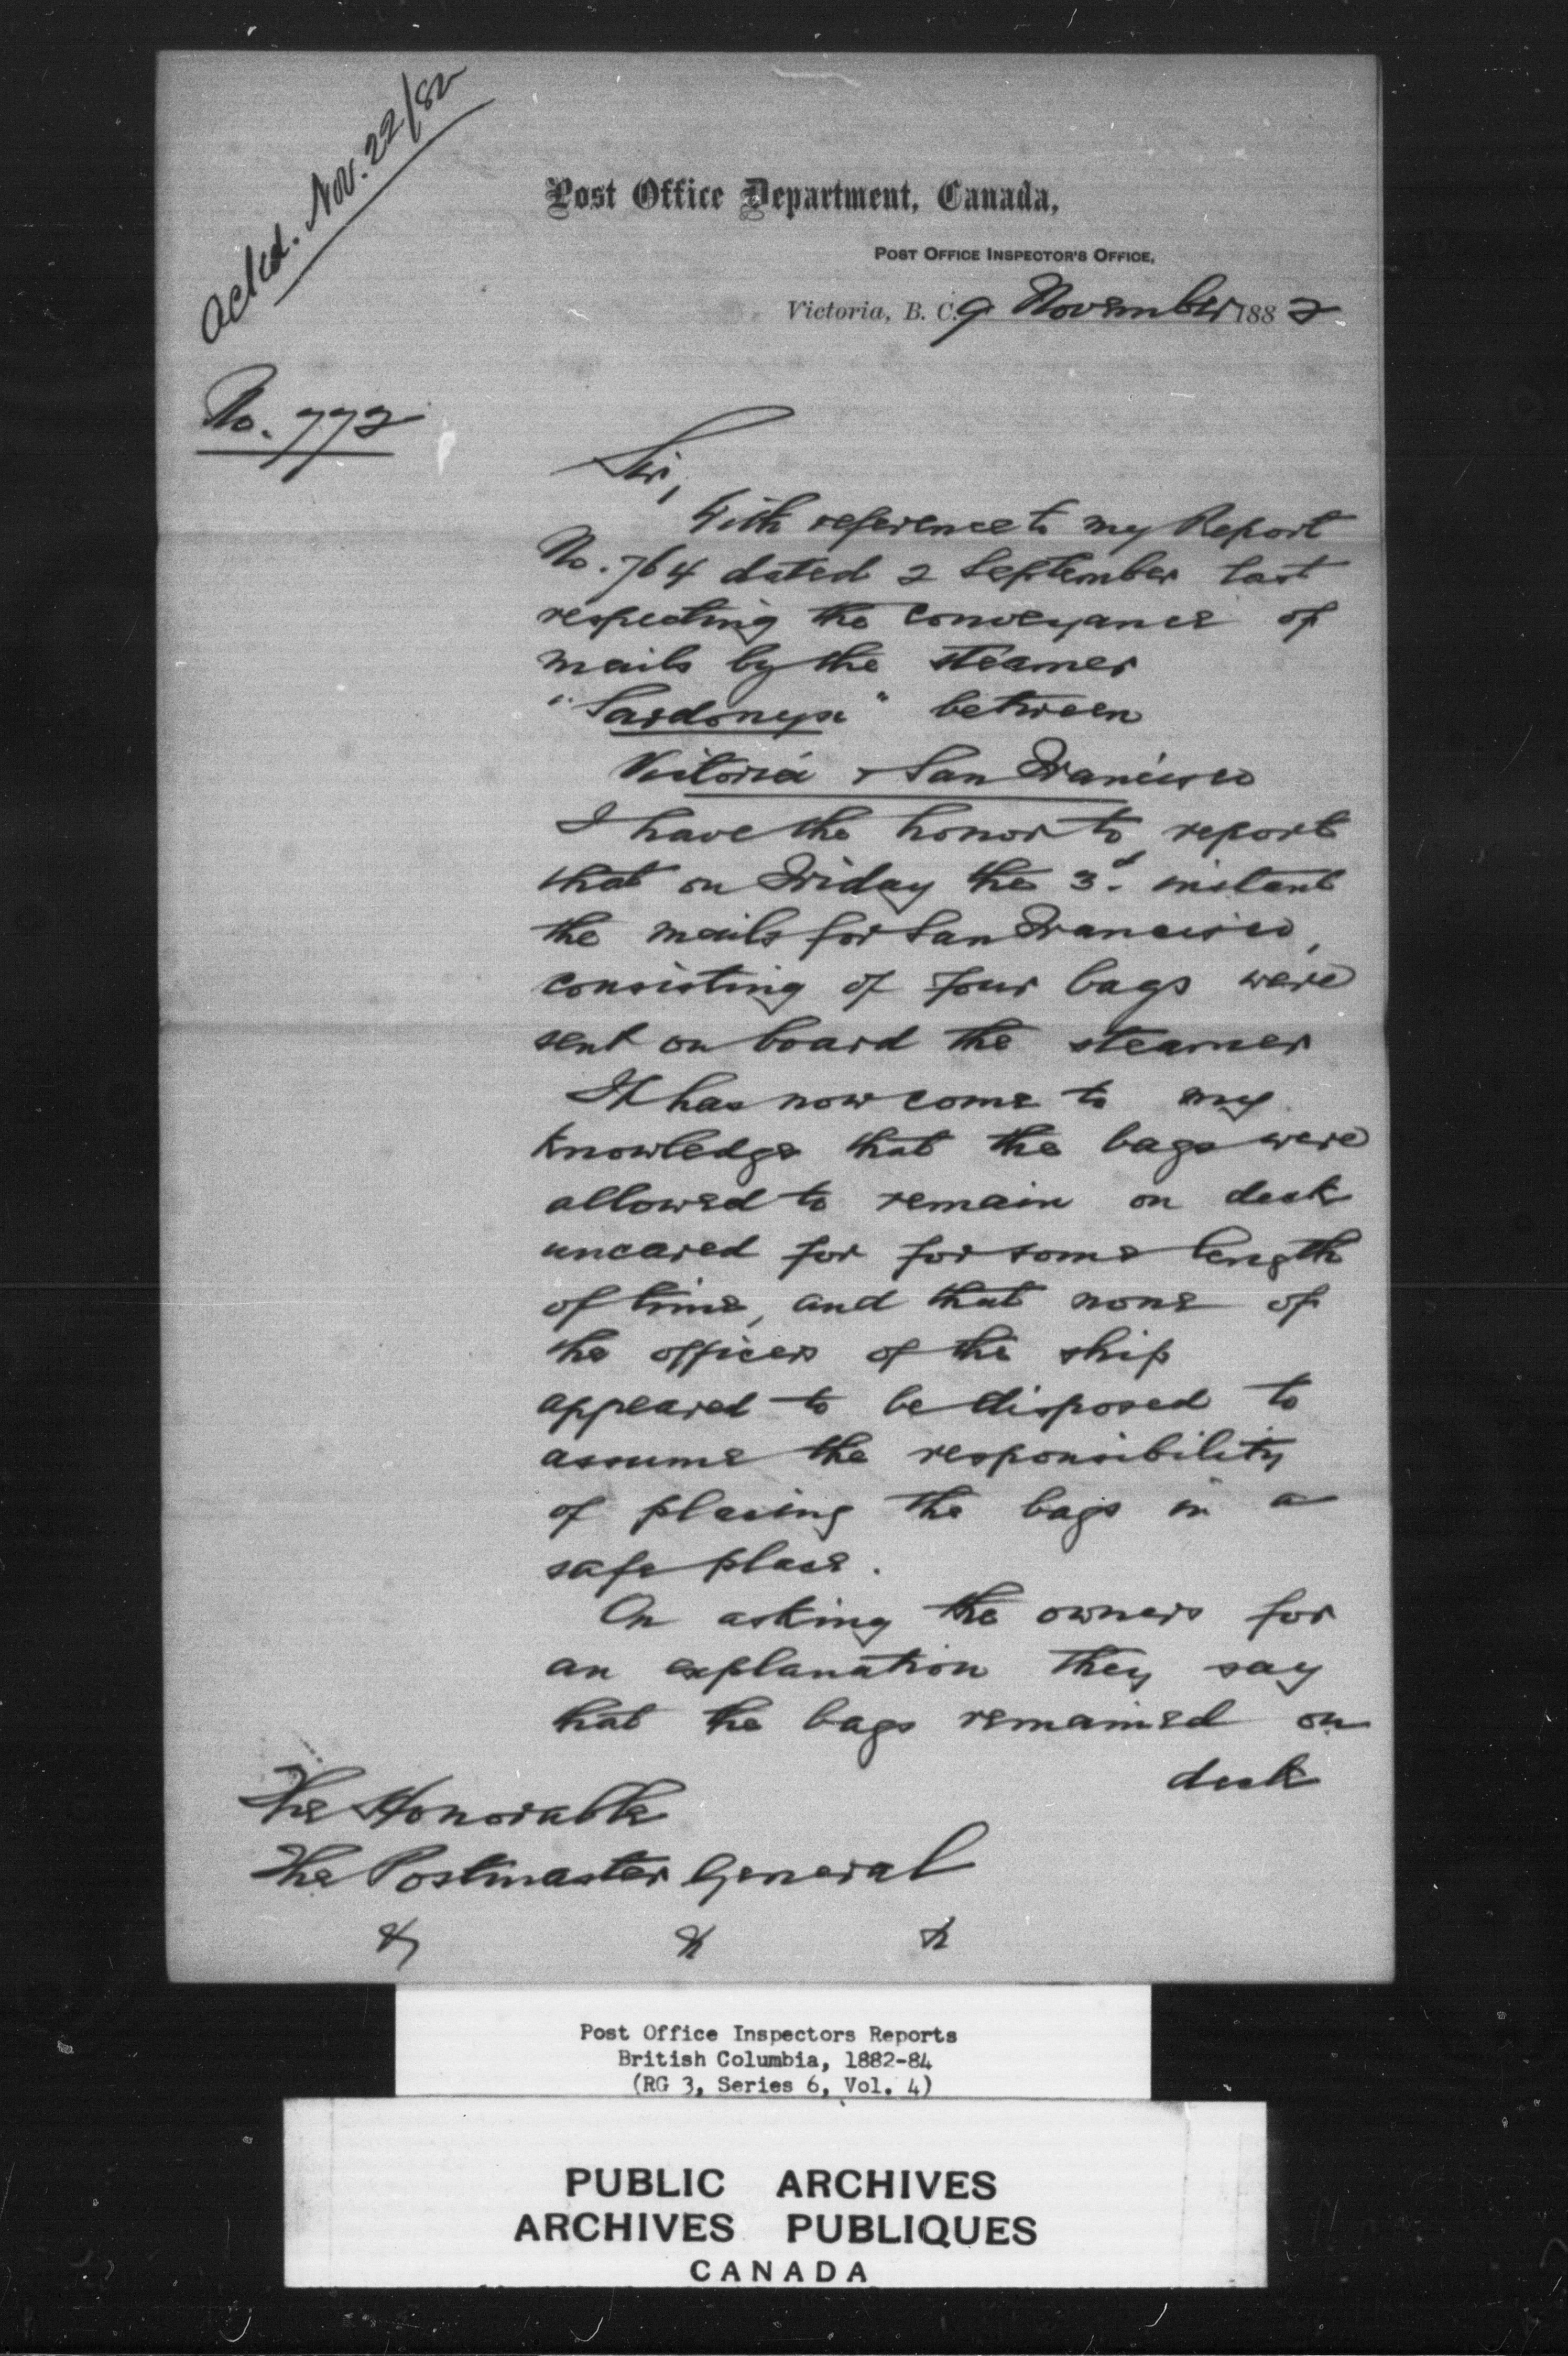 Acked. Nov. 22/82
Post Office Department, Canada,
Post Office Inspector's Office,
Victoria, B. C. 9 November 1882
No. 772
Sir,
With reference to my Report
No. 764 dated 2 September last
respecting the conveyance of
mails by the steamer
"Sardonyx" between
Victoria & San Francisco
I have the honor to report
that on Friday the 3d. instant
the mails for San Francisco,
consisting of four bags were
sent on board the steamer
It has now come to my
knowledge that the bags were
allowed to remain on deck
uncared for for some length
of time, and that none of
the officers of the ship
appeared to be disposed to
assume the responsibility
of placing the bags in a
safe place.
On asking the owners for
an explanation they say
that the bags remained on
deck
The Honorable
The Postmaster General
& & &
Post Office Inspectors Reports
British Columbia, 1882-84
(RG 3, Series 6, Vol. 4)
PUBLIC ARCHIVES
ARCHIVES PUBLIQUES
CANADA